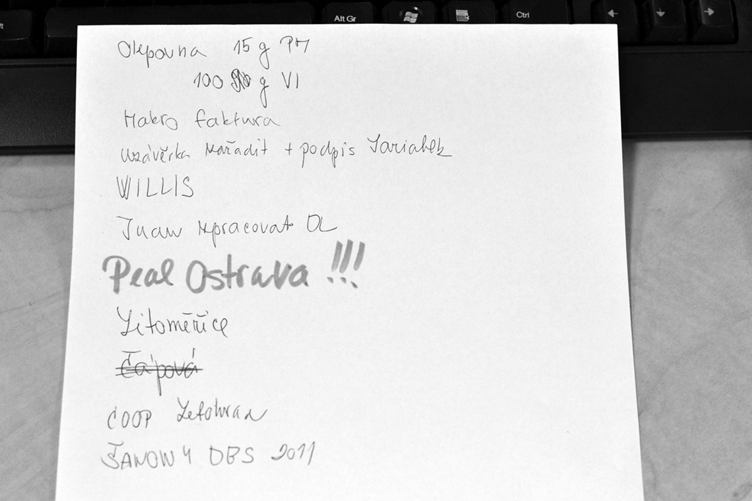 Alt Gr
Ctrl
15 g PM
100 g VI
Makro faktura
uzávěrka nářadit + podpis
WILLIS
Juan zpracovat DL
Peal Ostrava !!!
Litoměřice
Čápová
COOP Letohrad
DBS 2011